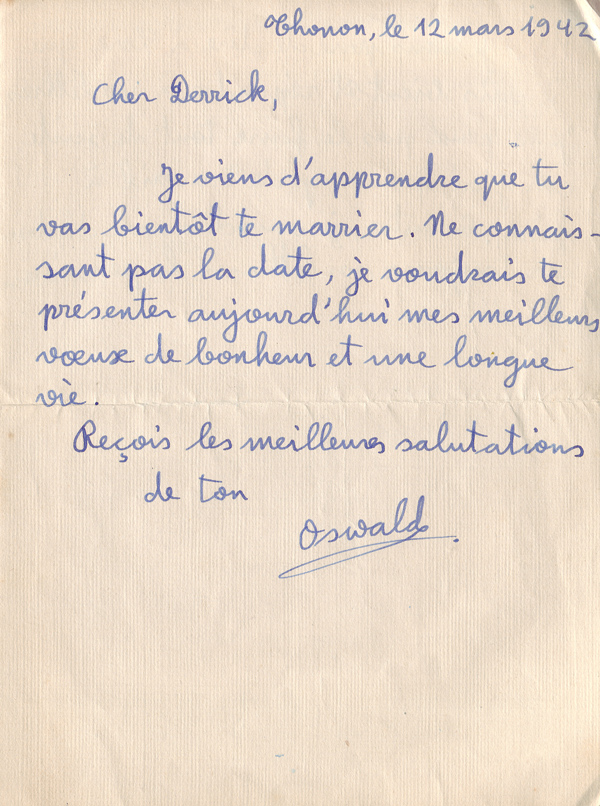 Thonon, le 12 mars 1942
Cher Derrick,
Je viens d'apprendre que tu
vas bientôt te marrier. Ne connais-
sant pas la date, je voudrais te
présenter aujourd'hui mes meilleurs
vœux de bonheur et une longue
vie.
Reçois les meilleures salutations
de ton
Oswald.